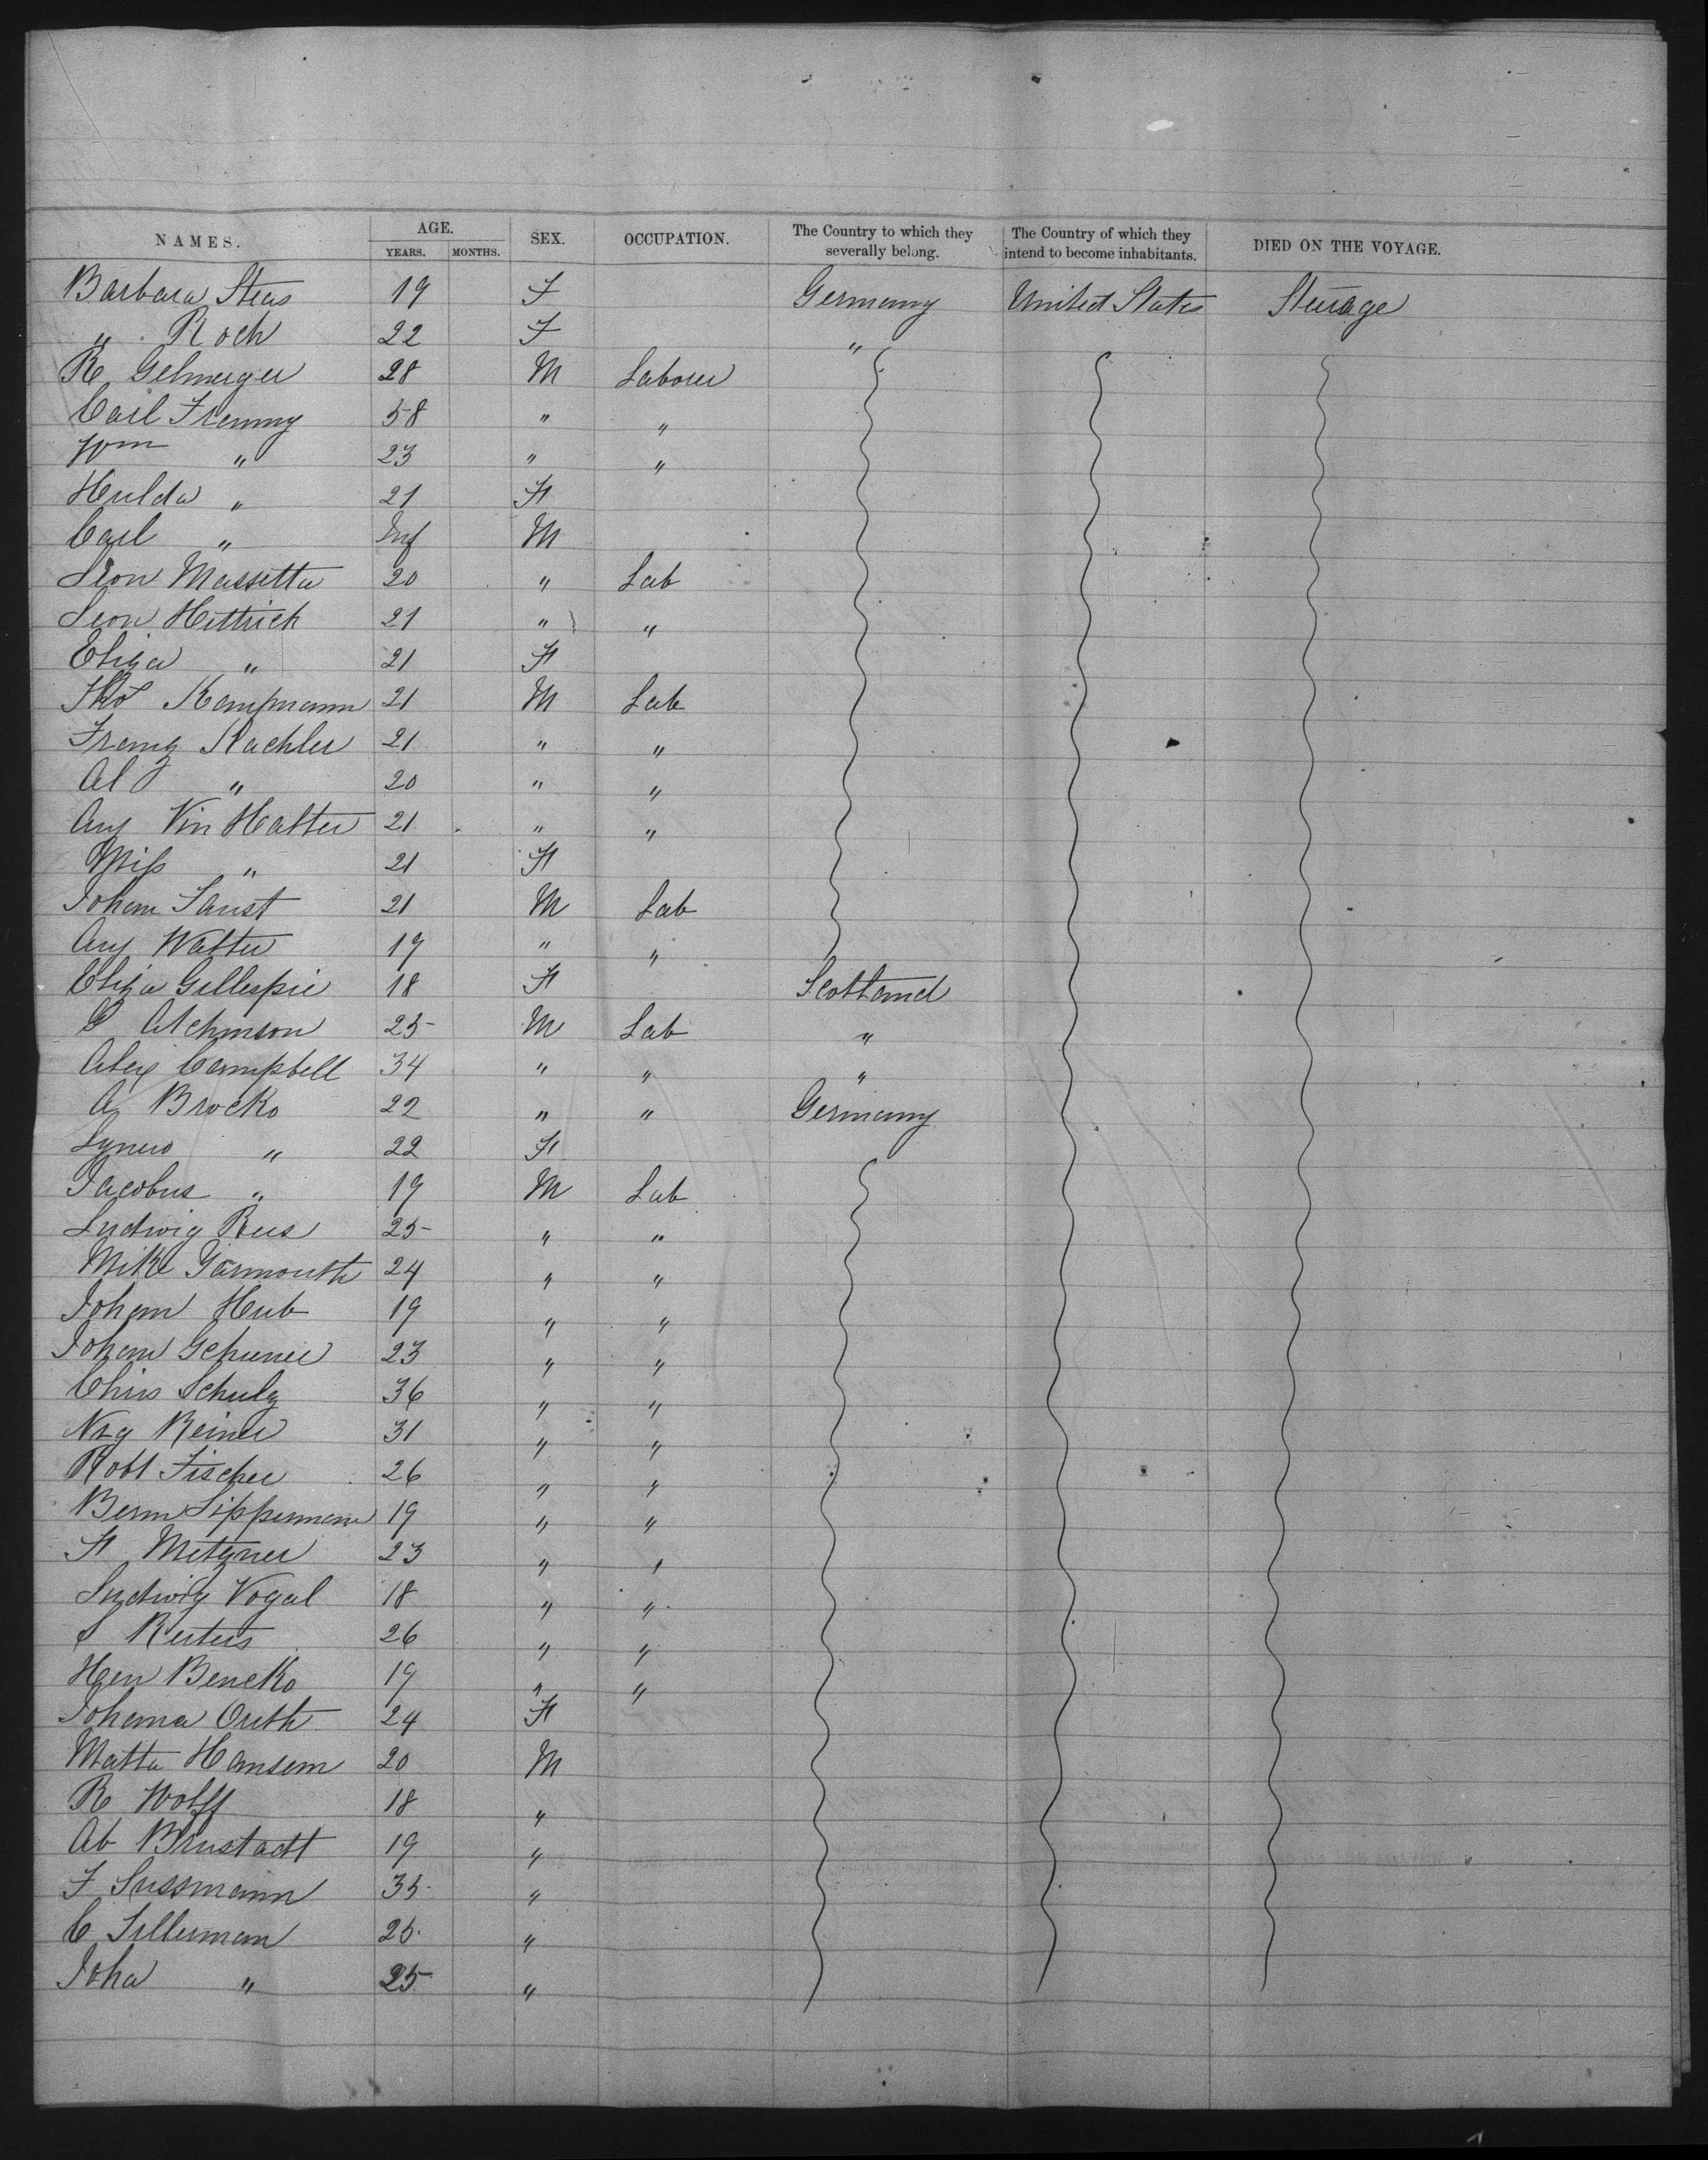 NAMES. AGE. YEARS. MONTHS. SEX. OCCUPATION. The Country to which they severally belong. The Country of which they intend to become inhabitants. DIED ON THE VOYAGE.
Barbara Steas 19 F Germany United States Steerage
" Roch 22 F "
R Gelmerger 28 M Laborer
Carl Fremmy 58 " "
Wm " 23 " "
Hulda " 21 F
Carl " Inf M
Leon Massetta 20 " Lab
Leon Hettrich 21 " "
Eliza " 21 F
Thos Kampmann 21 M Lab
Franz Kachler 21 " "
Al " 20 " "
Aug Vin Halter 21 " "
Miss " 21 F
Johan Faust 21 M Lab
Aug Walter 19 " "
Eliza Gillespie 18 F Scotland
G Atchinson 25 M Lab "
Alex Campbell 34 " " "
A Brocko 22 " " Germany
" 22 F
Jacobus " 19 M Lab
Ludwig Rus 25 " "
Mike Yarmouth 24 " "
Johan Hub 19 " "
Johan 23 " "
Chris Schulz 36 " "
Reiner 31 " "
Robt Fischer 26 " "
Berm Lippermann 19 " "
F Metzner 23 " "
Ludwig Vogal 18 " "
S Reuters 26 " "
Hen Bencko 19 " "
Johanna Outh 24 F
Matta Hansem 20 M
R Wolff 18 "
Ab Brustadt 19 "
F Sussmann 35 "
C Sillerman 25 "
Joha " 25 "